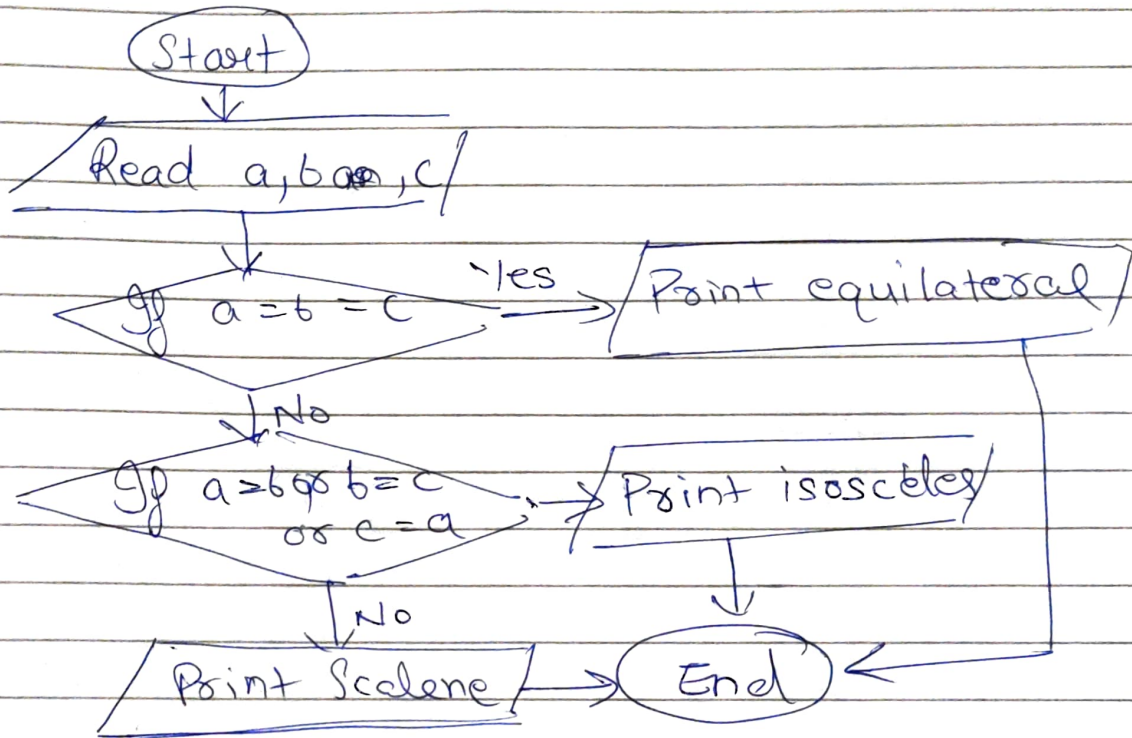 Start
Read a, b , c
If a = b = c
Yes
Print equilateral
No
If a = b or b = c
or c = a
Print isosceles
No
Print Scalene
End